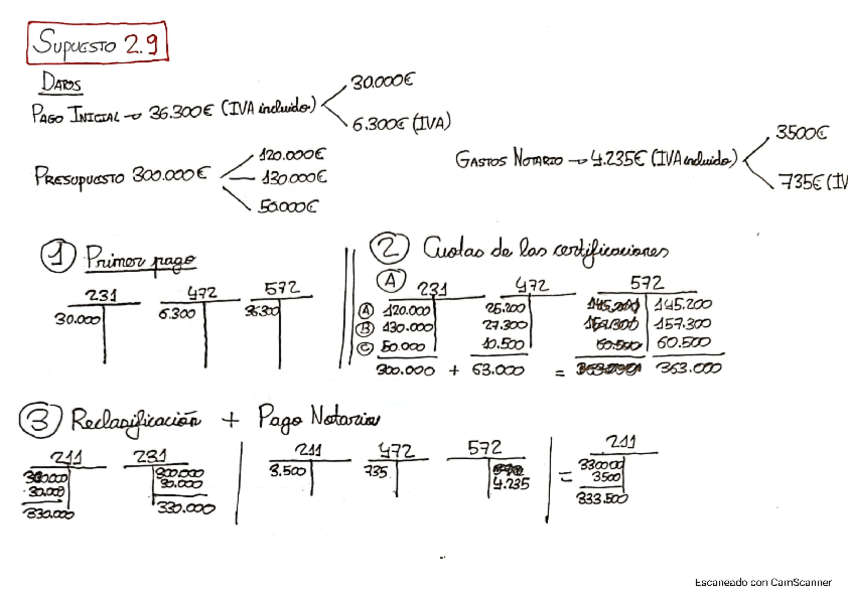 SUPUESTO 2.9
DATOS
PAGO INICIAL → 36.300€ (IVA incluido)
30.000€
6.300€ (IVA)
PRESUPUESTO 300.000€
120.000€
130.000€
50.000€
GASTOS NOTARIO → 4.235€ (IVA incluido)
3500€
735€ (IV
1 Primer pago
231 472 572
30.000 6.300 36.300
2 Cuotas de las certificaciones
A
231 472 572
A 120.000 25.200 145.200 145.200
B 130.000 27.300 157.300 157.300
C 50.000 10.500 60.500 60.500
300.000 + 63.000 = 363.000 363.000
3 Reclasificación + Pago Notario
211 231
300.000 300.000
30.000 30.000
330.000 330.000
211 472 572
3.500 735 4.235
= 211
330000
3500
333.500
Escaneado con CamScanner